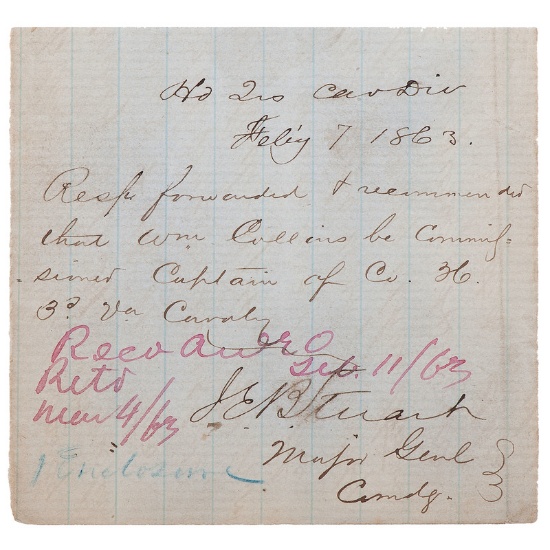 Hd Qrs Cav Div
Feb'y 7 1863.
Respy forwarded & recommended
that Wm Collins be Commis-
sioned Captain of Co. H.
3d Va Cavalry
Recd A&IGO
Feb. 11/63
Retd
Mar 4/63
J E B Stuart
Major Genl
Comdg.
1 Enclosure